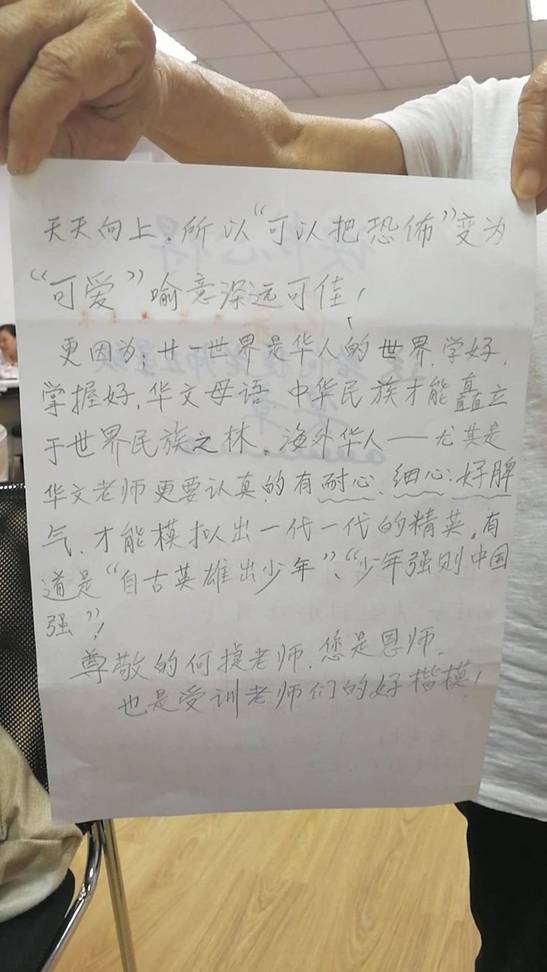 天天向上，所以“可以把恐佈”变为
“可爱”喻意深远可佳！
更因为：廿一世界是华人的世界，学好，
掌握好，华文母语 中华民族才能矗立
于世界民族之林。海外华人——尤其是
华文老师更要认真的有耐心、细心；好脾
气，才能模拟出一代一代的精英。有
道是“自古英雄出少年”、“少年强则中国
强”！
尊敬的何捷老师，您是恩师，
也是受训老师们的好楷模！